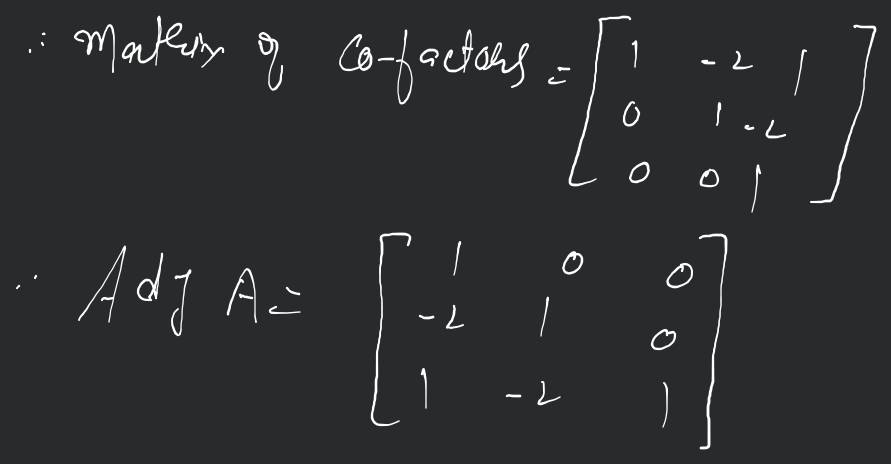 ∴ Matrix of Co-factors = [ 1 -2 1
0 1 -2
0 0 1 ]
∴ Adj A = [ 1 0 0
-2 1 0
1 -2 1 ]